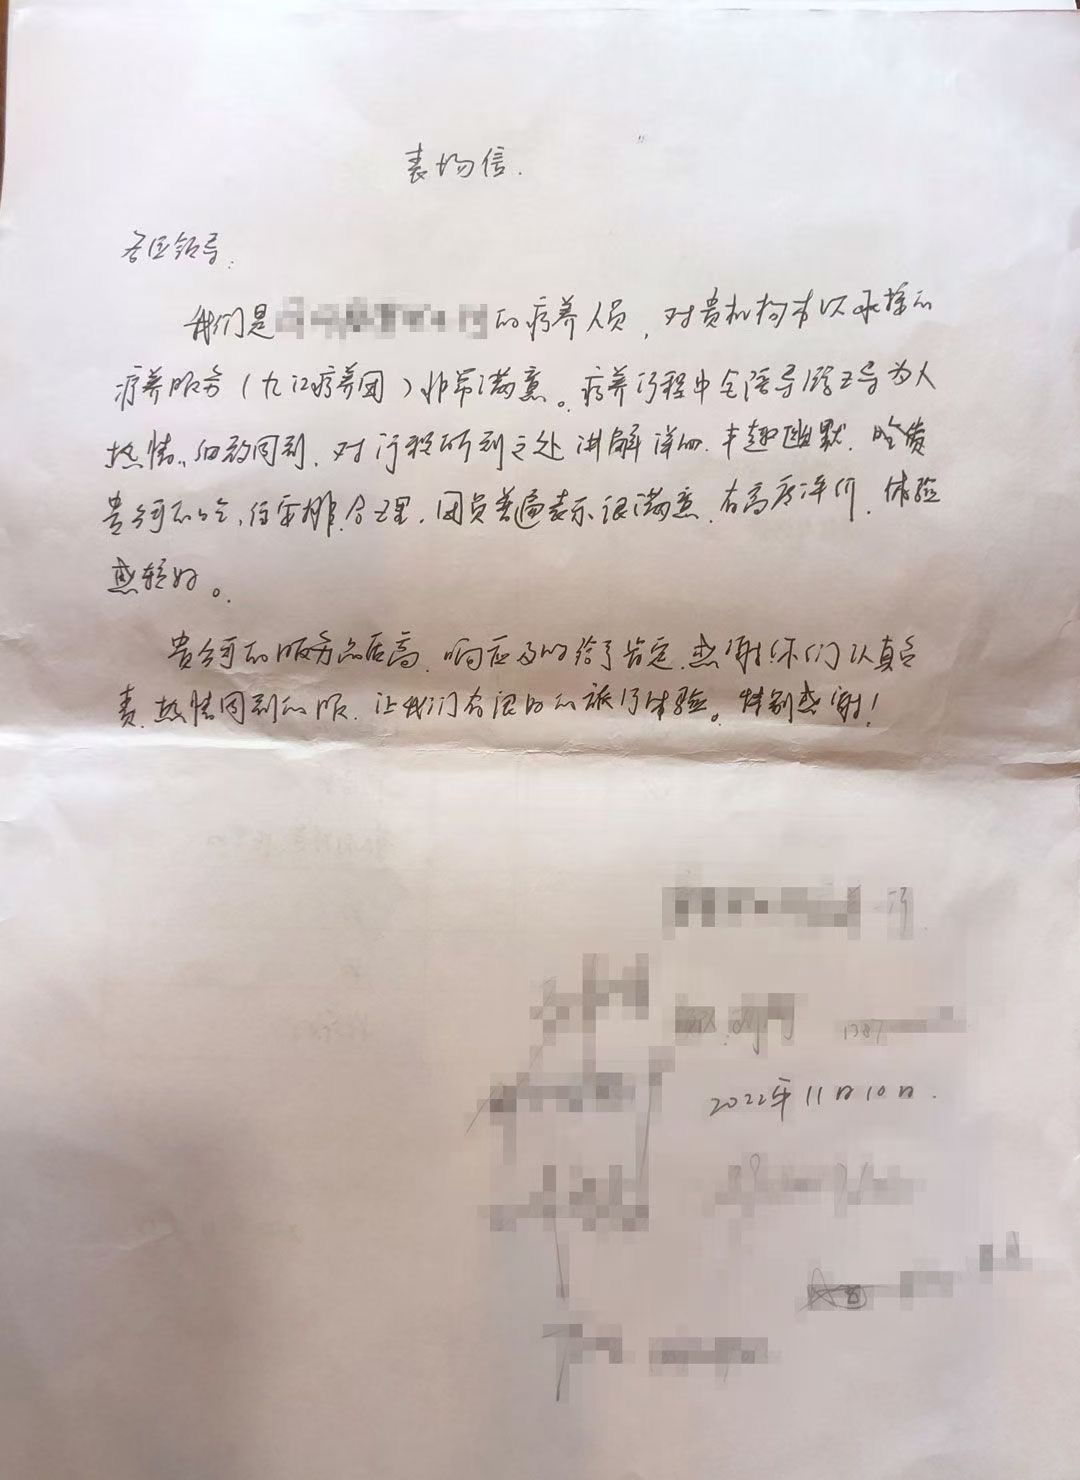 表扬信.
各位领导:
我们是 的疗养人员,对贵机构 的
疗养服务(九江疗养团)非常满意。疗养行程中全陪导游 导为人
热情、细致周到,对行程所到之处讲解详细、丰趣幽默.
贵公司的吃、住安排合理,团员普遍表示很满意,有高度评价,体验
感较好。
贵公司的服务品质高,响应及时给予肯定,感谢你们认真负
责、热情周到的服,让我们有很好的旅行体验。特别感谢!
1387
2022年11月10日.